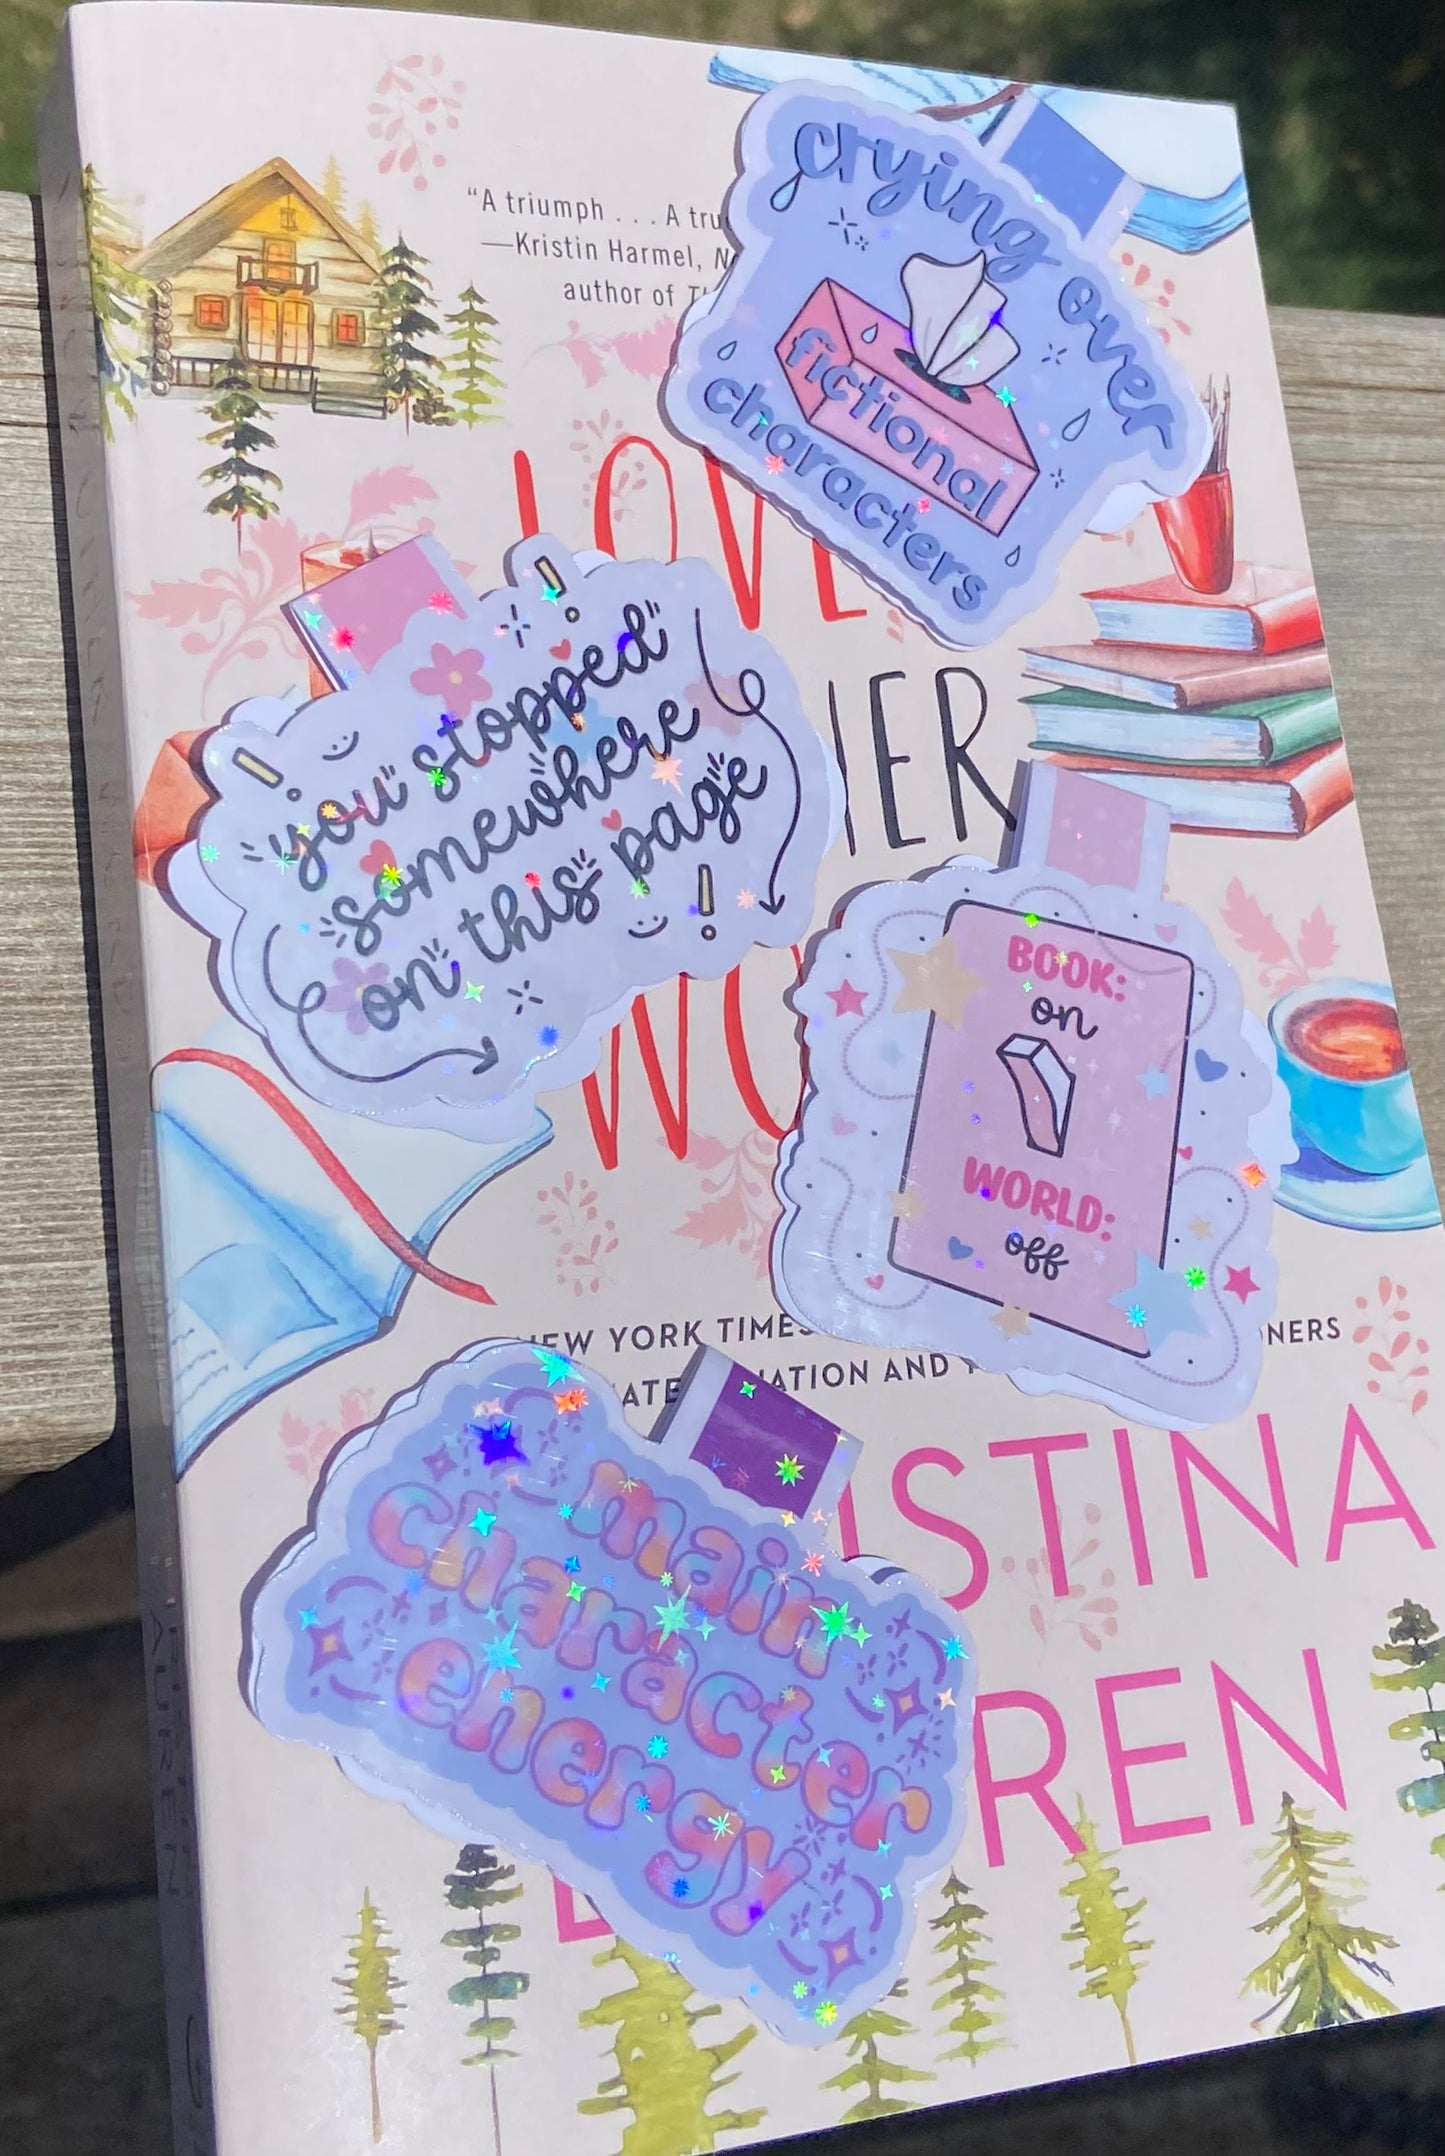 "A triumph . . . A
—Kristin Harmel,
author of
crying over
fictional
characters
LOVE
you stopped
somewhere
on this page
BOOK:
on
WORLD:
off
NEW YORK TIMES
AND
main
character
energy
CHRISTINA
LAUREN